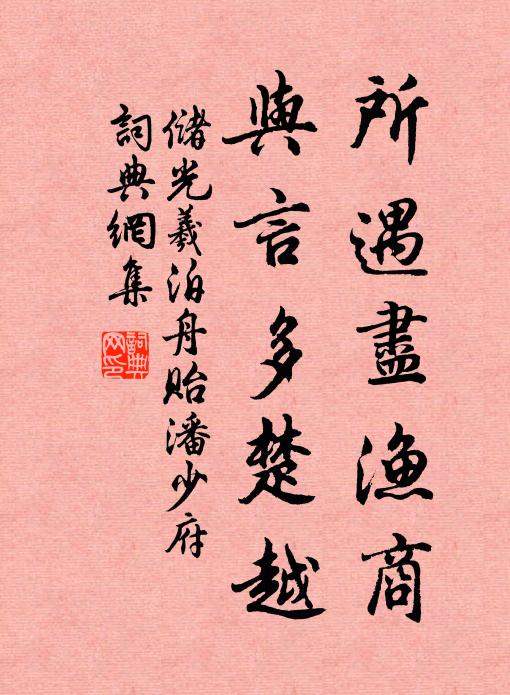 所遇盡漁商
與言多楚越
儲光羲泊舟貽潘少府
詞典網集
詞典網印